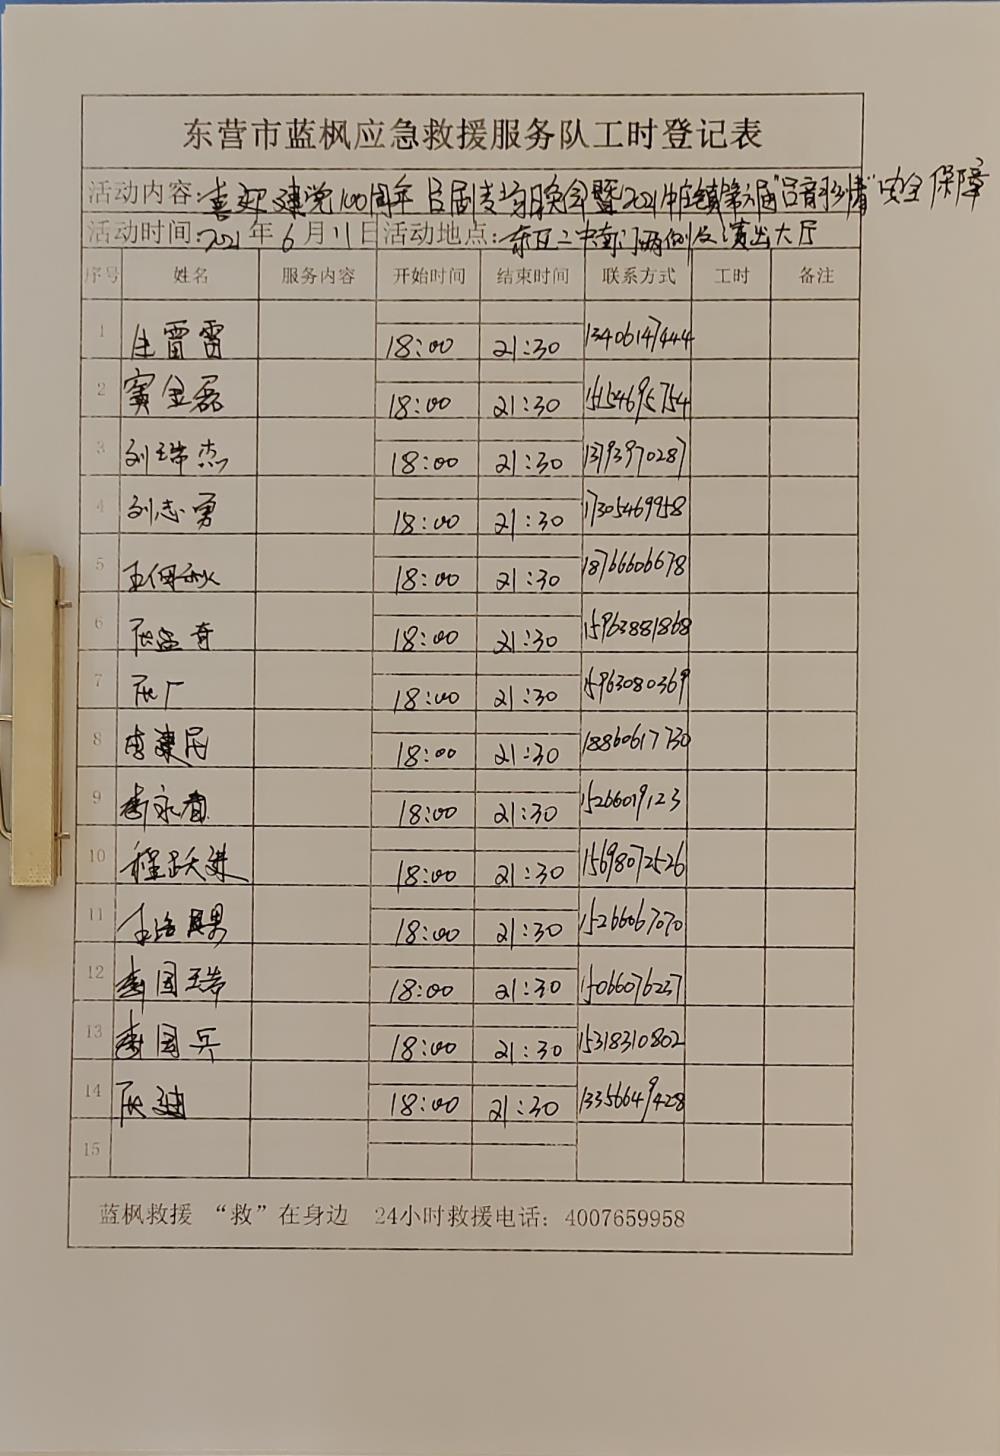 东营市蓝枫应急救援服务队工时登记表
活动内容:喜迎建党100周年 吕剧专场晚会暨2021牛庄镇第六届"吕音乡情"安全保障
活动时间:2021年6月11日活动地点:东区二中南门两侧及演出大厅
序号 姓名 服务内容 开始时间 结束时间 联系方式 工时 备注
1 雷雷 18:00 21:30 13406147444
2 窦金磊 18:00 21:30 15154695754
3 刘瑞杰 18:00 21:30 13793970287
4 刘志勇 18:00 21:30 17305469958
5 王 秋 18:00 21:30 18766606678
6 奇 18:00 21:30 15963881868
7 18:00 21:30 15963080369
8 李建民 18:00 21:30 18860617730
9 李永 18:00 21:30 15266019123
10 程跃进 18:00 21:30 15698072526
11 18:00 21:30 15266067070
12 李国瑞 18:00 21:30 15066076237
13 李国兵 18:00 21:30 15318310802
14 18:00 21:30 13356649428
15
蓝枫救援 “救”在身边 24小时救援电话：4007659958